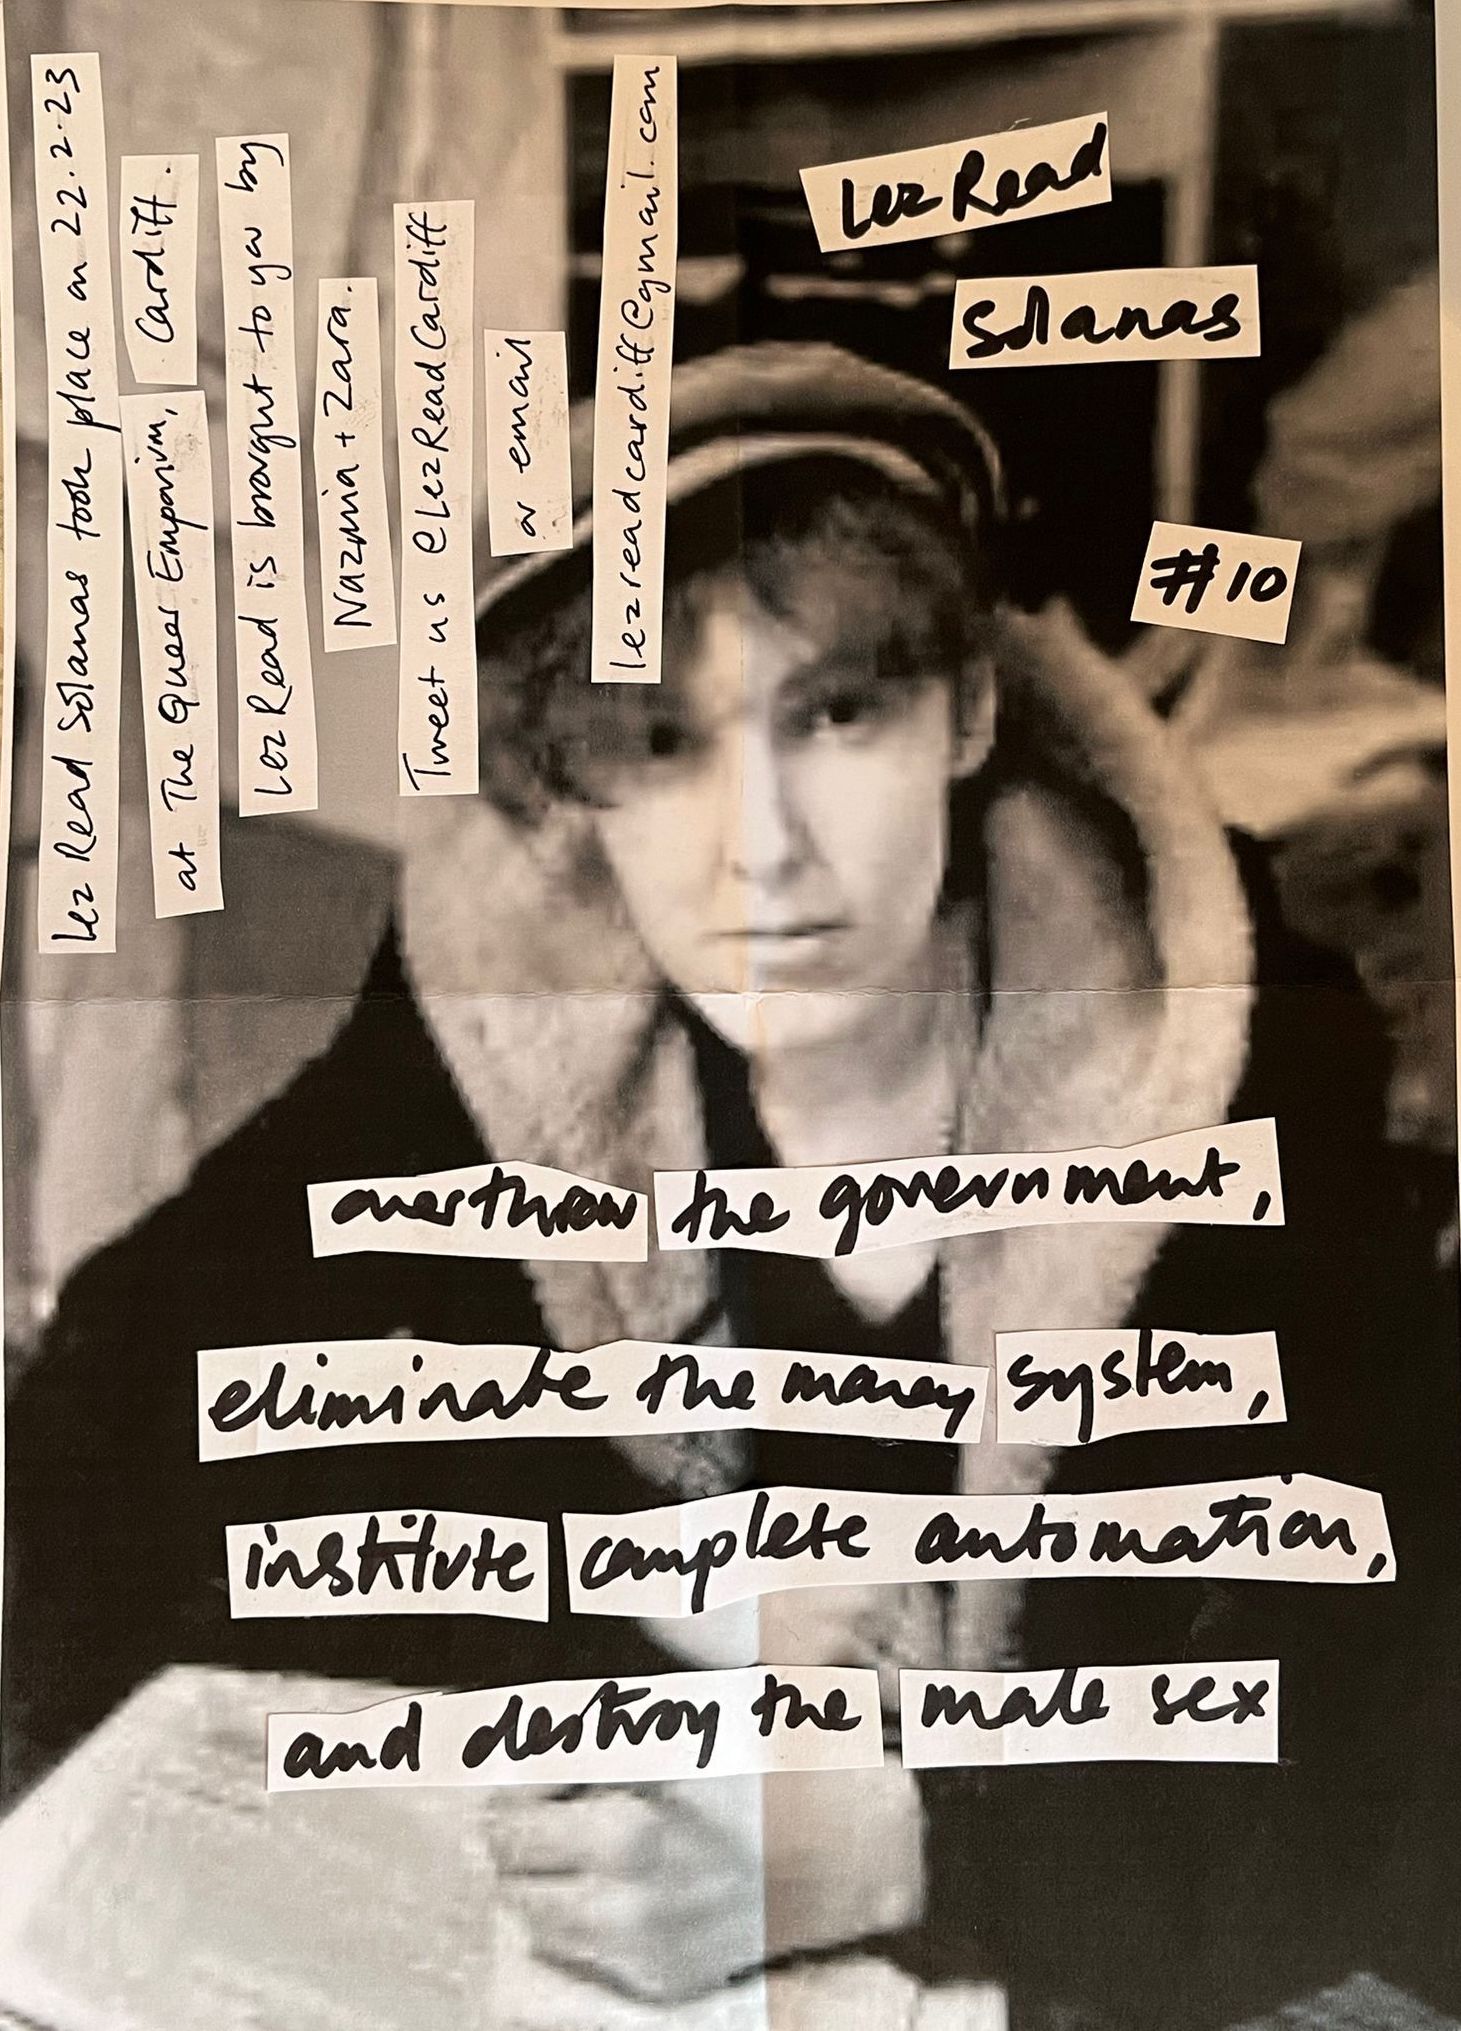 Lez Read
Solanas
#10
Lez Read Solanas took place on 22.2.23
at The Queer Emporium, Cardiff.
Lez Read is brought to you by
Nazmia + Zara.
Tweet us @LezReadCardiff
or email
lezreadcardiff@gmail.com
overthrow the government,
eliminate the money system,
institute complete automation,
and destroy the male sex